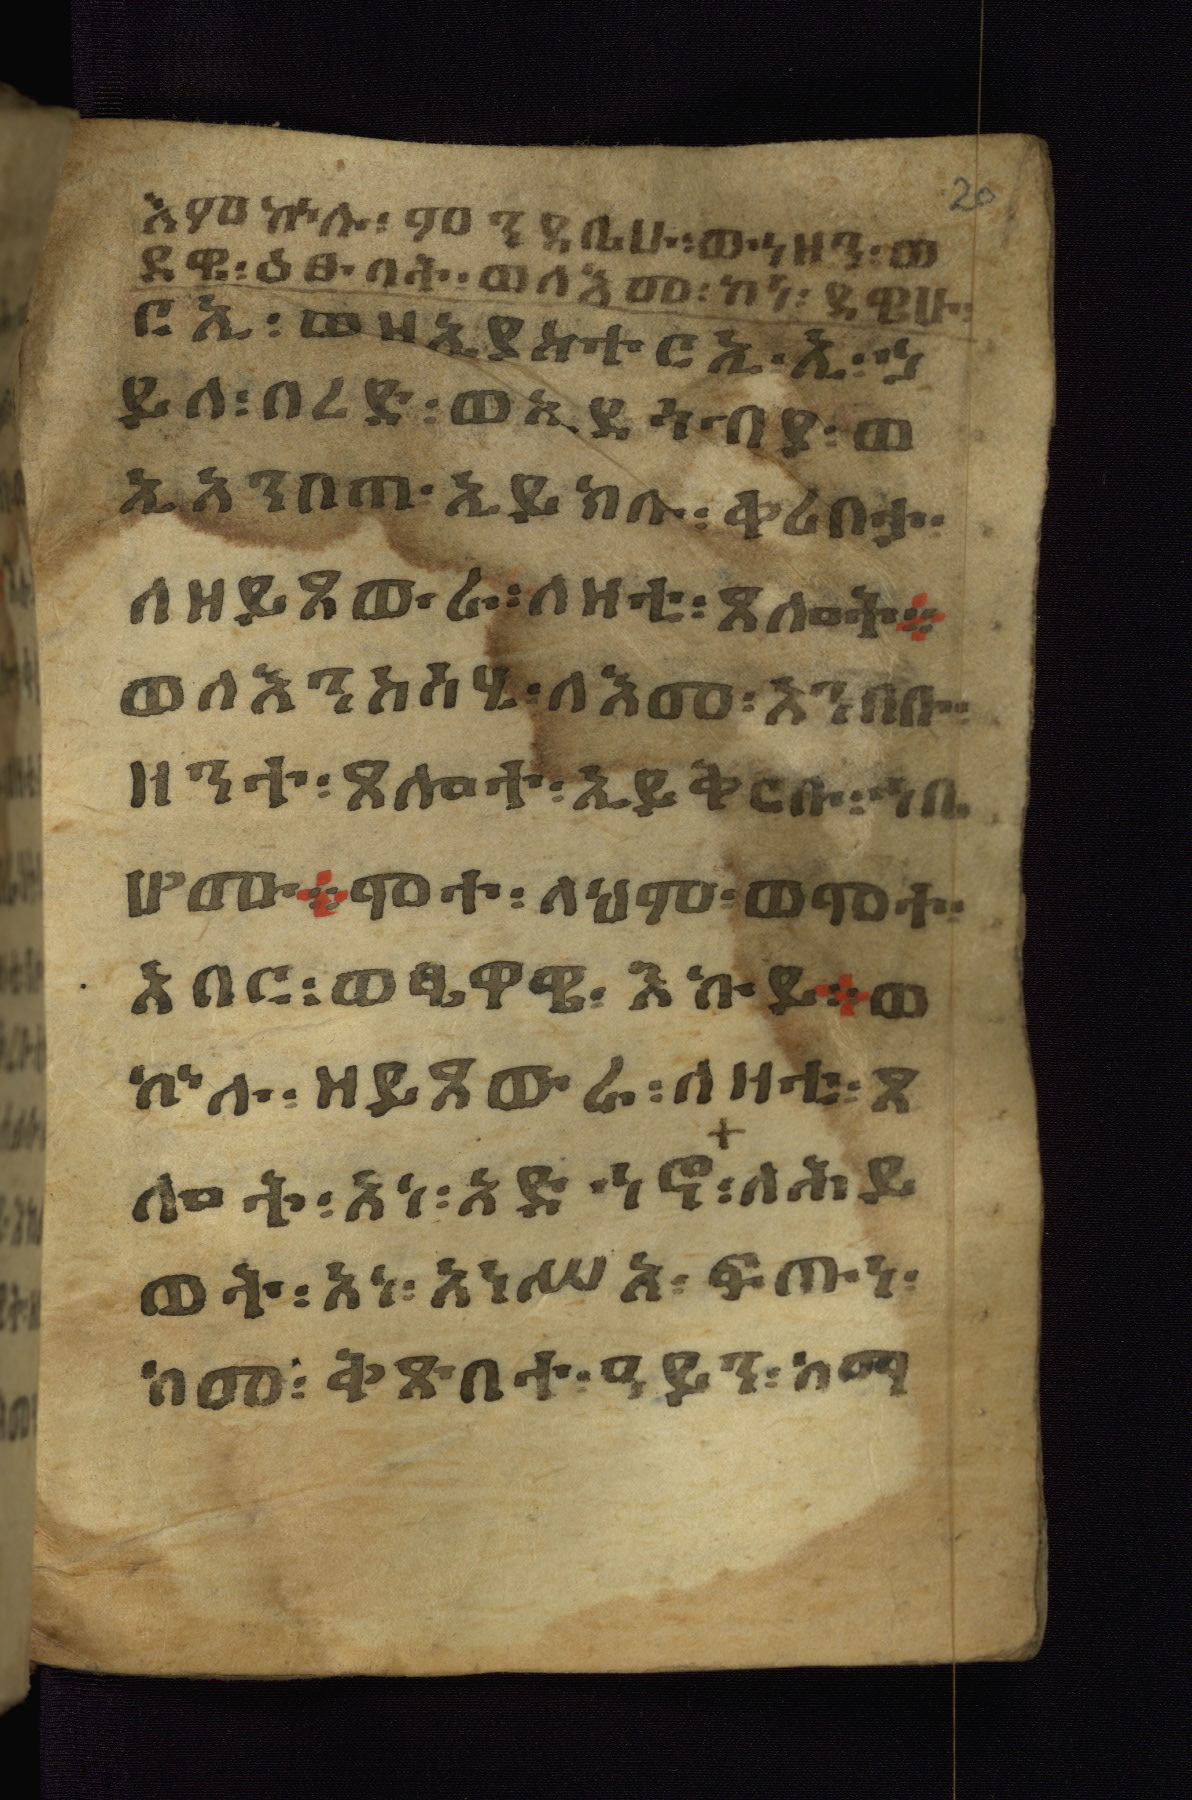 20
እምኵሉ፡ ምንዳቤሁ፡ ወኀዘን፡ ወ
ደዌ፡ ዕፁብት፡ ወለእመ፡ ኮነ፡ ደዌሁ፡
ርኢ፡ ወዘኢያስተርኢ፡ ኢ፡ ኀ
ይለ፡ በረድ፡ ወኢደዓብያ፡ ወ
ኢአንበጣ፡ ኢይክሉ፡ ቀሪበታ፡
ለዘይጸውራ፡ ለዛቲ፡ ጸሎት፨
ወለእንስሳሂ፡ ለእመ፡ አንበቡ፡
ዘንተ፡ ጸሎተ፡ ኢይቅርቡ፡ ኀቤ
ሆሙ፨ ሞተ፡ ላህም፡ ወሞተ፡
እበር፡ ወፄዋዌ፡ እኩይ፨ ወ
ኵሉ፡ ዘይጸውራ፡ ለዛቲ፡ ጸ
ሎት፡ እነ፡ አድኅኖ፡ ለሕይ
ወት፡ እነ፡ እነሥአ፡ ፍጡነ፡
ከመ፡ ቅጽበተ፡ ዓይን፡ ከማ